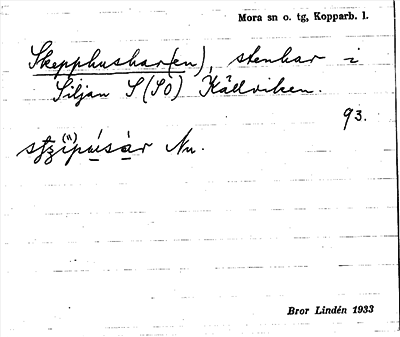 Mora sn o. tg, Kopparb. l.
Skepphushar(en), stenhar i
Siljan S (SO) Kållviken.
93.
Nu.
Bror Lindén 1933